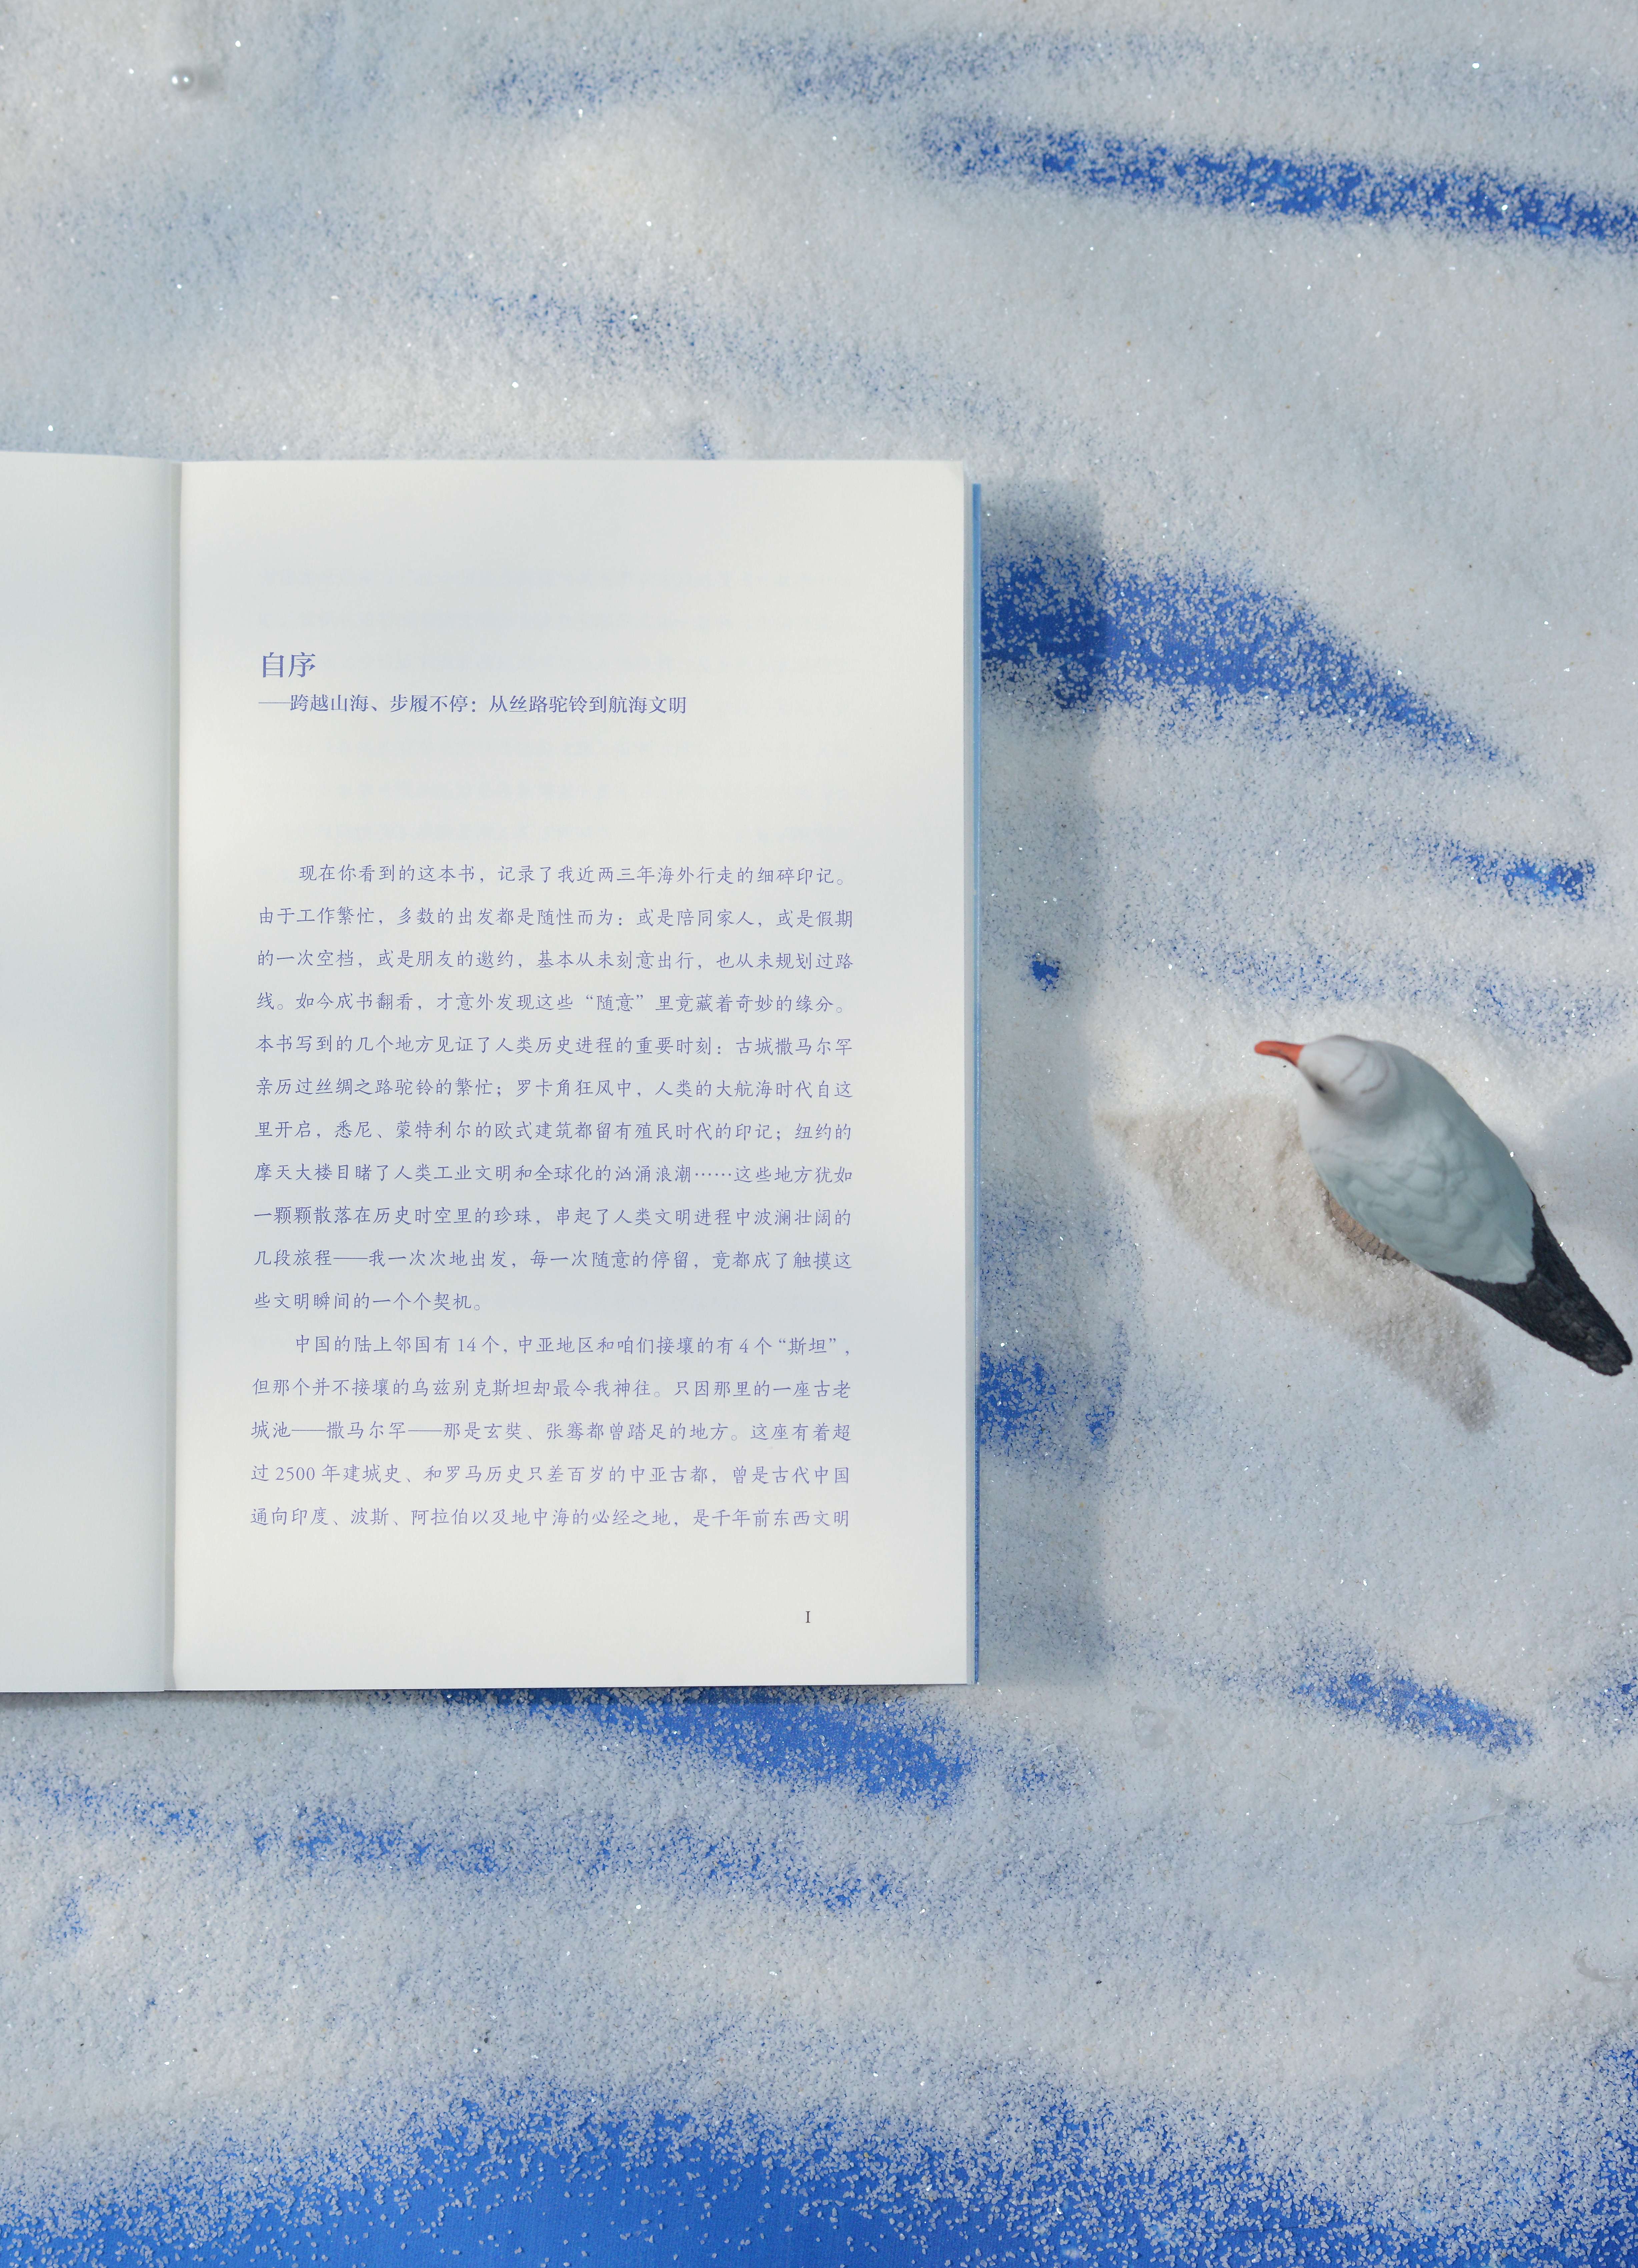 自序
——跨越山海、步履不停：从丝路驼铃到航海文明
现在你看到的这本书，记录了我近两三年海外行走的细碎印记。
由于工作繁忙，多数的出发都是随性而为：或是陪同家人，或是假期
的一次空档，或是朋友的邀约，基本从未刻意出行，也从未规划过路
线。如今成书翻看，才意外发现这些“随意”里竟藏着奇妙的缘分。
本书写到的几个地方见证了人类历史进程的重要时刻：古城撒马尔罕
亲历过丝绸之路驼铃的繁忙；罗卡角狂风中，人类的大航海时代自这
里开启，悉尼、蒙特利尔的欧式建筑都留有殖民时代的印记；纽约的
摩天大楼目睹了人类工业文明和全球化的汹涌浪潮……这些地方犹如
一颗颗散落在历史时空里的珍珠，串起了人类文明进程中波澜壮阔的
几段旅程——我一次次地出发，每一次随意的停留，竟都成了触摸这
些文明瞬间的一个个契机。
中国的陆上邻国有14个，中亚地区和咱们接壤的有4个“斯坦”，
但那个并不接壤的乌兹别克斯坦却最令我神往。只因那里的一座古老
城池——撒马尔罕——那是玄奘、张骞都曾踏足的地方。这座有着超
过2500年建城史、和罗马历史只差百岁的中亚古都，曾是古代中国
通向印度、波斯、阿拉伯以及地中海的必经之地，是千年前东西文明
I